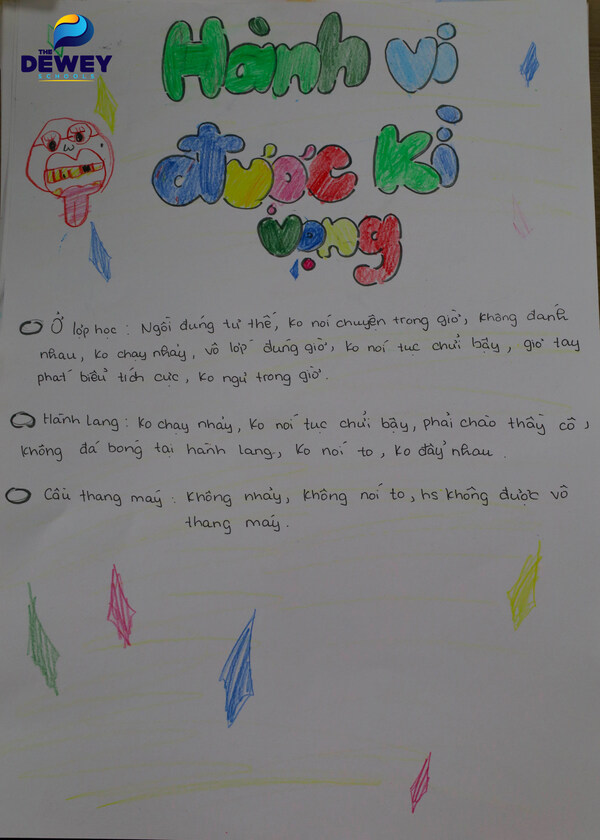 THE
DEWEY
SCHOOLS
Hành vi
được kì
vọng
Ở lớp học : Ngồi đúng tư thế, ko nói chuyện trong giờ, không đánh
nhau, ko chạy nhảy, vô lớp đúng giờ, ko nói tục chửi bậy, giơ tay
phát biểu tích cực, ko ngủ trong giờ.
Hành lang : ko chạy nhảy, ko nói tục chửi bậy, phải chào thầy cô,
không đá bóng tại hành lang, ko nói to, ko đẩy nhau.
Cầu thang máy : không nhảy, không nói to, hs không được vô
thang máy.